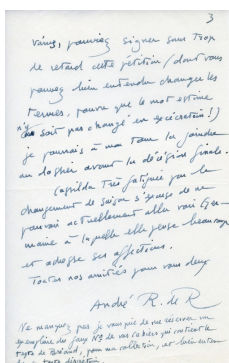 3
vains, pouviez signer sans trop
de retard cette pétition (dont vous
pouvez bien entendu changer les
termes, pourvu que le mot estime
n'y soit pas changé en exécration !)
je pourrais à mon tour la joindre
au dossier avant la décision finale.
Casilda très fatiguée par le
changement de saison s'excuse de ne
pouvoir actuellement aller voir Ger-
maine à laquelle elle pense beaucoup
et adresse ses affections.
Toutes nos amitiés pour vous deux
André R. de R
Ne manquez pas je vous prie de me réserver un
exemplaire du Nº de vos cahiers qui contient le
texte de Briand, pour ma collection, et bien entendu
texte discrétion